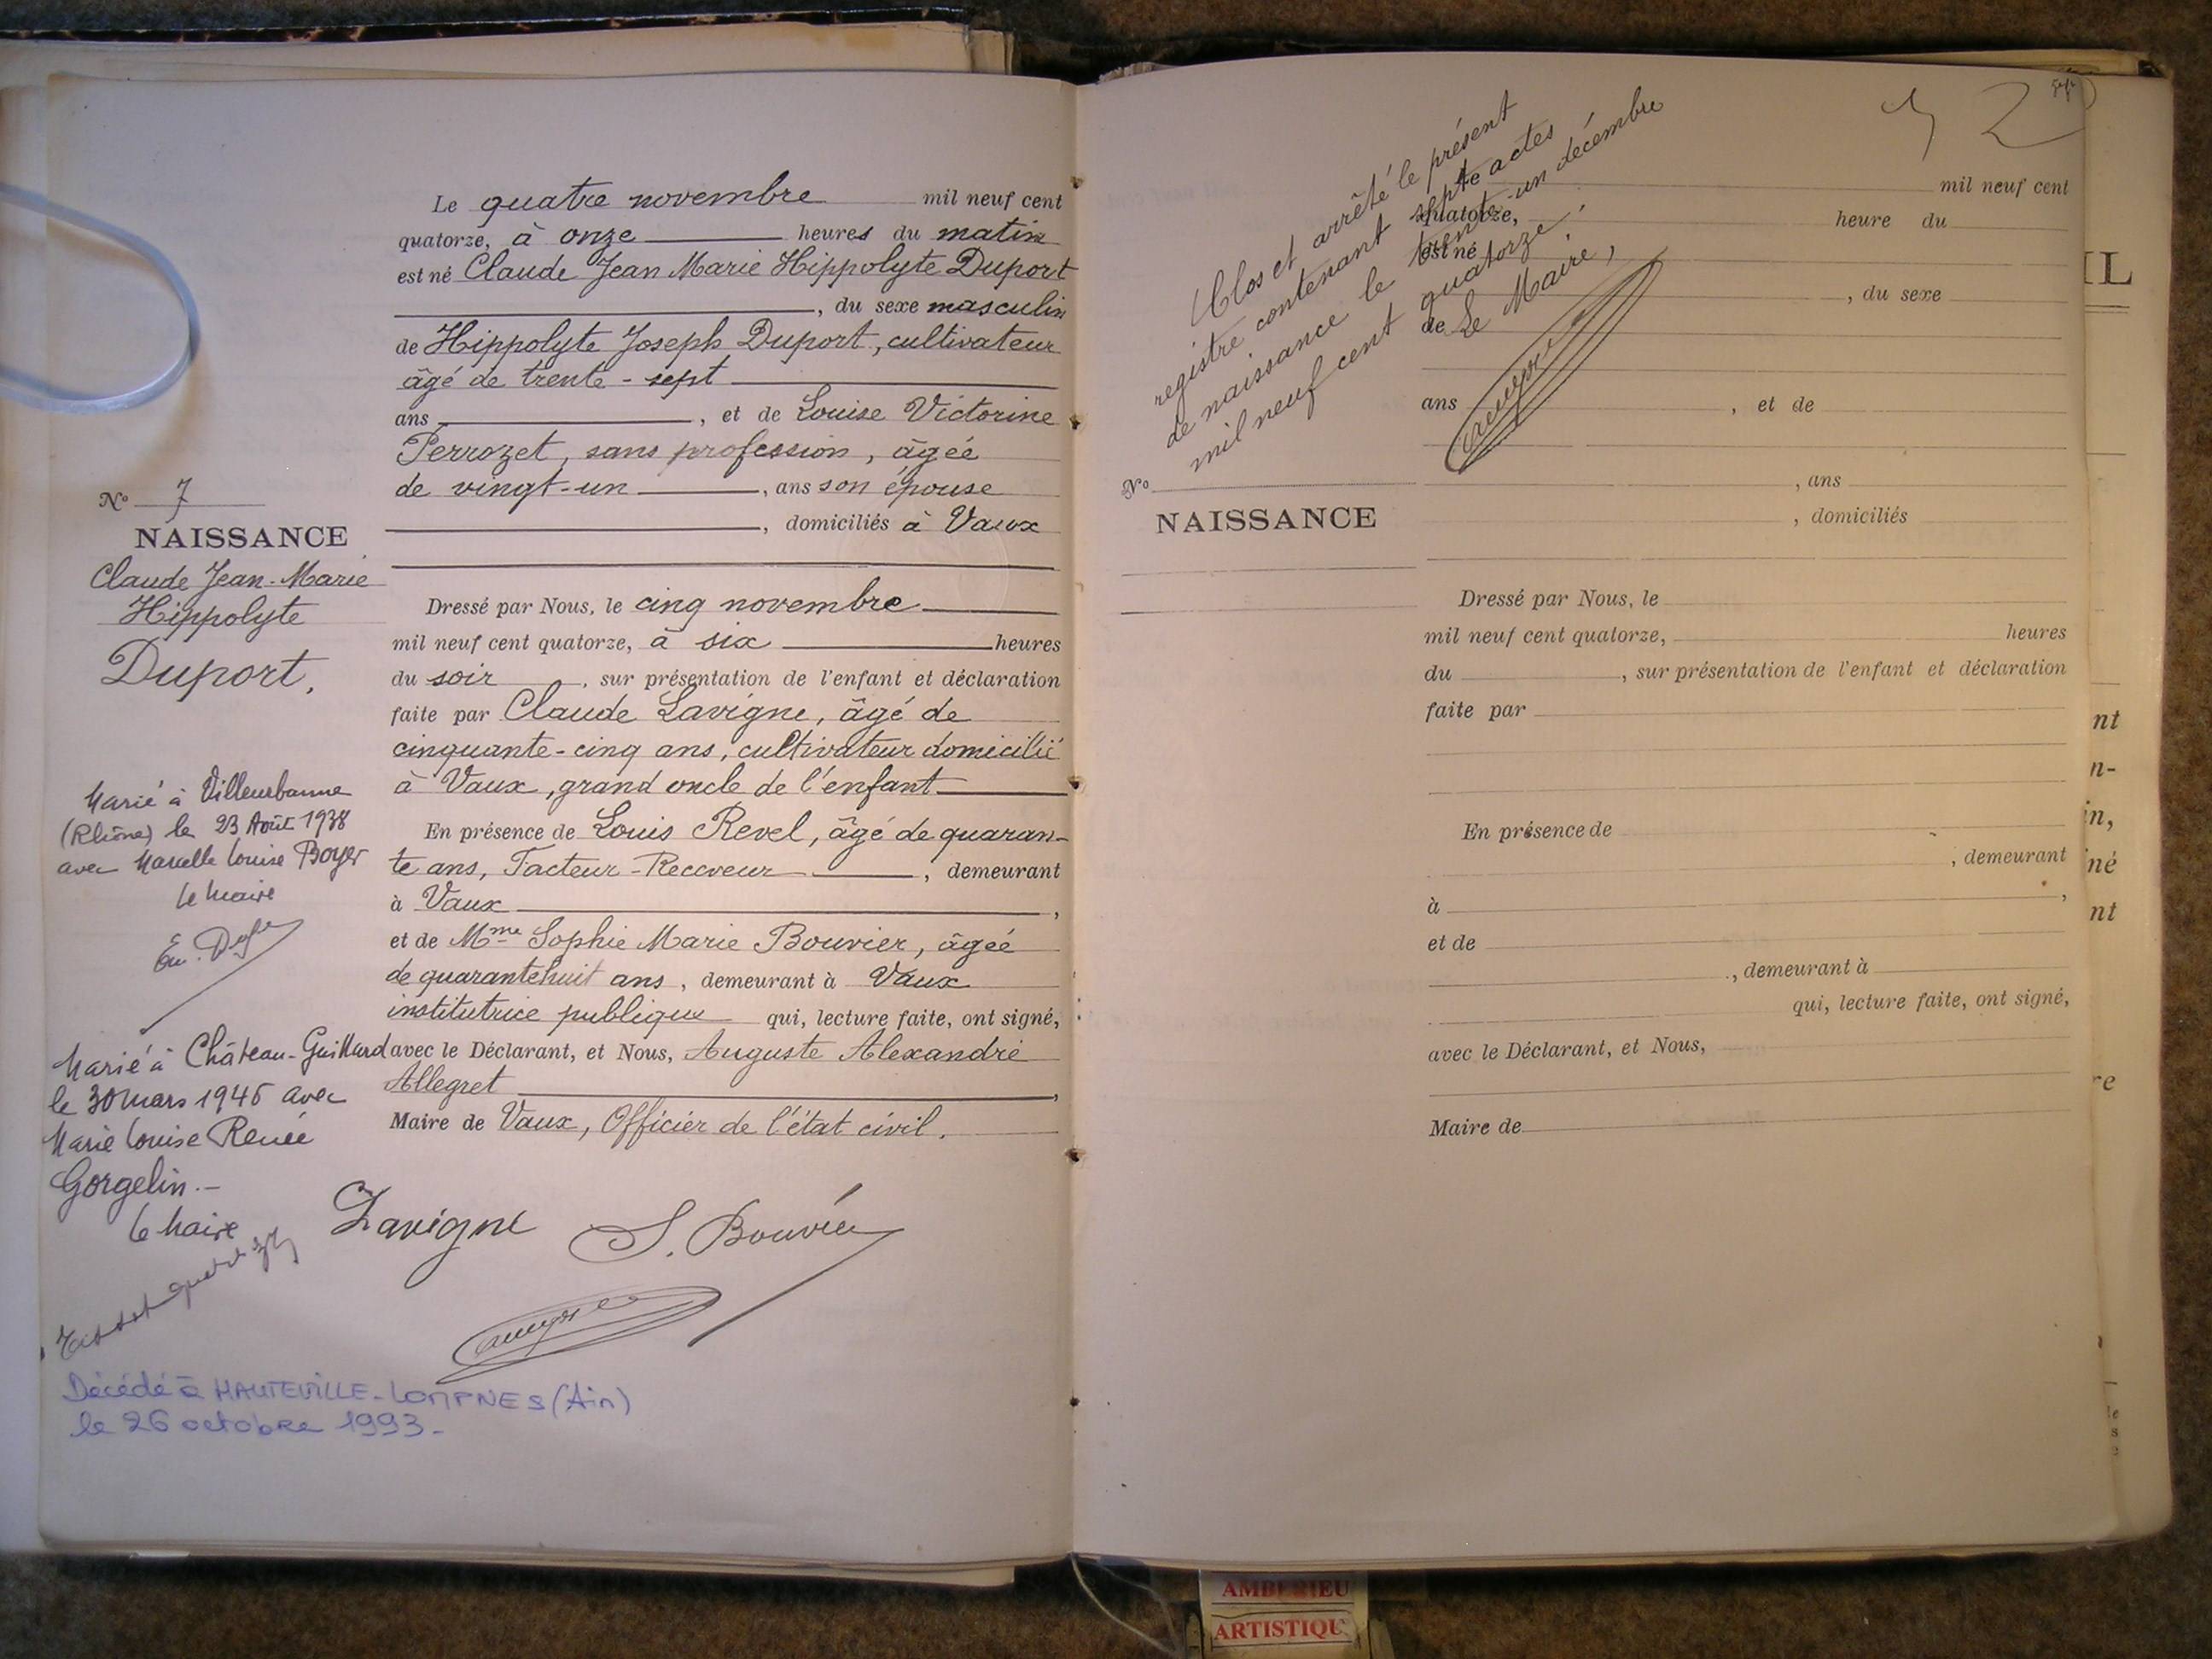 Le quatre novembre mil neuf cent
quatorze, à onze heures du matin
est né Claude Jean Marie Hippolyte Duport
, du sexe masculin
de Hippolyte Joseph Duport, cultivateur
âgé de trente-sept
ans , et de Louise Victorine
Perrozet, sans profession, âgée
de vingt-un , ans son épouse
, domiciliés à Vaux
N° 7
NAISSANCE
Claude Jean-Marie
Hippolyte
Duport.
Dressé par Nous, le cinq novembre
mil neuf cent quatorze, à six heures
du soir , sur présentation de l'enfant et déclaration
faite par Claude Lavigne, âgé de
cinquante-cinq ans, cultivateur domicilié
à Vaux, grand oncle de l'enfant
En présence de Louis Revel, âgé de quaran-
te ans, Facteur-Receveur , demeurant
à Vaux ,
et de Mme Sophie Marie Bouvier, âgée
de quarantehuit ans, demeurant à Vaux
institutrice publique qui, lecture faite, ont signé,
avec le Déclarant, et Nous, Auguste Alexandre
Allegret ,
Maire de Vaux, Officier de l'état civil.
Marié à Villeurbanne
(Rhône) le 23 Août 1938
avec Marcelle Louise Boyer
le Maire
Marié à Château-Guillard
le 30 mars 1946 avec
Marie Louise Renée
Gorgelin.-
le Maire
Lavigne
S. Bouvier
Décédé à HAUTEVILLE-LOMPNES (Ain)
le 26 octobre 1993-
Clos et arrêté le présent
registre contenant sept actes
de naissance le trente-un décembre
mil neuf cent quatorze.
Le Maire,
mil neuf cent
quatorze, heure du
est né
, du sexe
de
ans , et de
, ans
, domiciliés
N°
NAISSANCE
Dressé par Nous, le
mil neuf cent quatorze, heures
du , sur présentation de l'enfant et déclaration
faite par
En présence de
, demeurant
à ,
et de
, demeurant à
qui, lecture faite, ont signé,
avec le Déclarant, et Nous,
Maire de
IL
nt
n-
in,
né
nt
re
AMBERIEU
ARTISTIQU